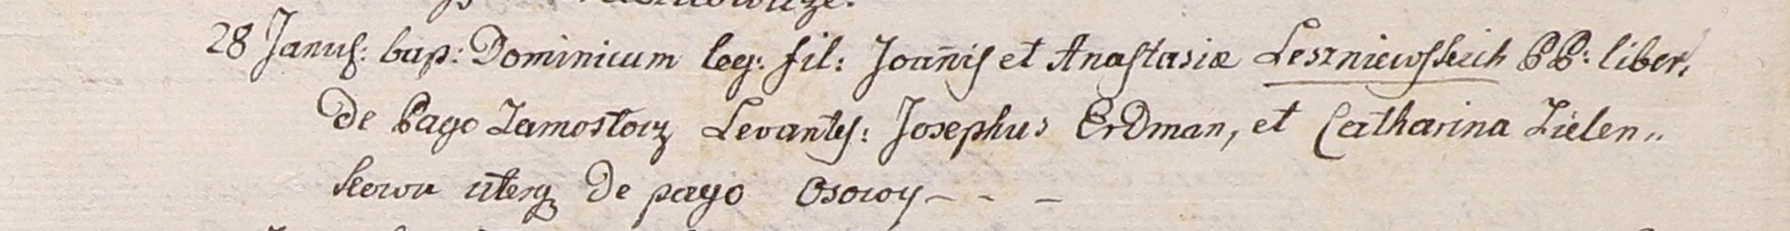 28 Januſ: bap: Dominicum leg: fil: Joan̄iſ et Anaſtasiæ Leszniewſkich PP: liber,
de Pago Zamostocz Levanteſ: Josephus Erdman, et Catharina Zielen„
kowa uterq de pago Osowy - - -